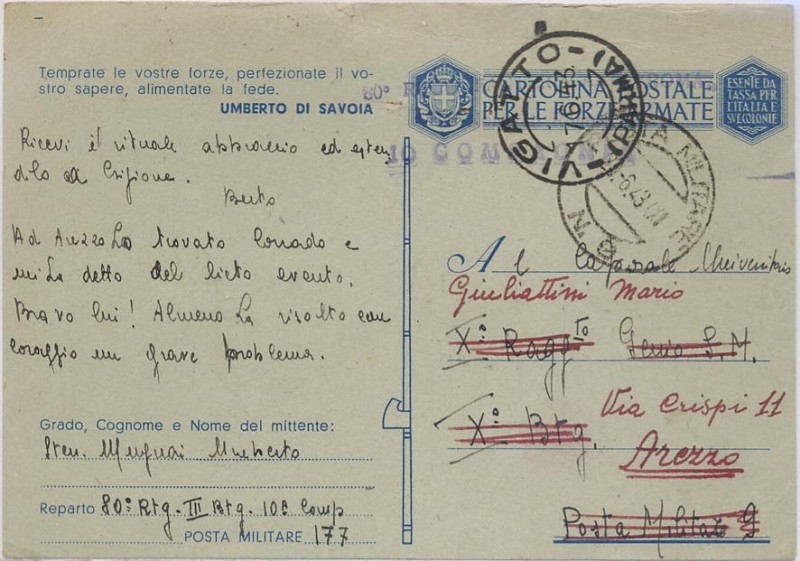 Temprate le vostre forze, perfezionate il vo-
stro sapere, alimentate la fede.
UMBERTO DI SAVOIA
Ricevi il rituale abbraccio ed esten
dilo a
Berto
Ad Arezzo ho trovato Corrado e
mi ha detto del lieto evento.
Bravo lui! Almeno ha risolto con
coraggio un grave problema.
Grado, Cognome e Nome del mittente:
Sten. Mugnai Umberto
Reparto 80° Rtg. III Btg. 10ª Comp
POSTA MILITARE 177
CARTOLINA POSTALE
PER LE FORZE ARMATE
ESENTE DA
TASSA PER
L'ITALIA E
SUE COLONIE
80° R ROMA
10 COMPAGNIA
VIGATTO (PARMA)
17.6.43.
POSTA MILITARE N
.6.43.XXI
Al Caporale Universitario
Giuliattini Mario
X° Ragg.to Genio S.M.
X° Btg. Via Crispi 11
Arezzo
Posta Militare 9